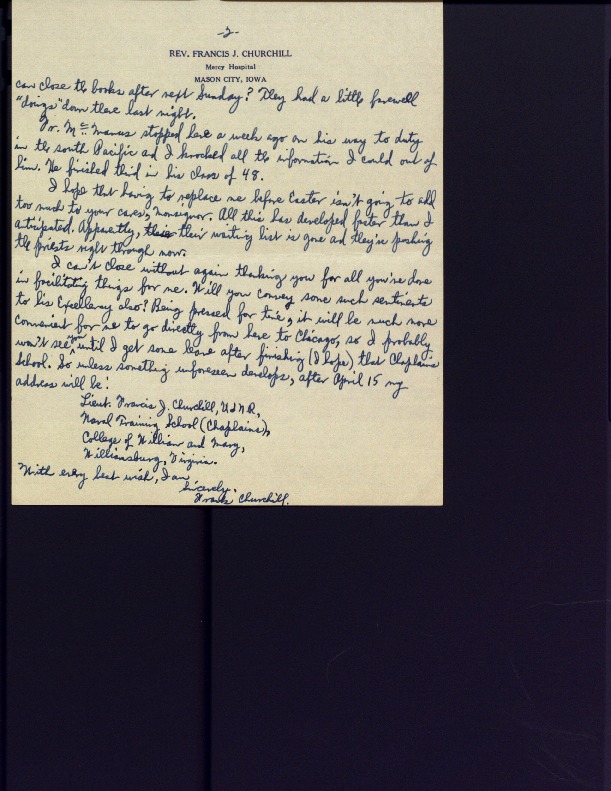 -2-
REV. FRANCIS J. CHURCHILL
Mercy Hospital
MASON CITY, IOWA
can close the books after next Sunday? They had a little farewell
"doings" down there last night.
Fr. McManus stopped here a week ago on his way to duty
in the south Pacific and I knocked all the information I could out of
him. He finished third in his class of 48.
I hope that having to replace me before Easter isn't going to add
too much to your cares, Monsignor. All this has developed faster than I
anticipated. Apparently, their waiting list is gone and they're pushing
the priests right through now.
I can't close without again thanking you for all you've done
in facilitating things for me. Will you convey some such sentiments
to his Excellency also? Being pressed for time, it will be much more
convenient for me to go directly from here to Chicago, so I probably
won't see you until I get some leave after finishing (I hope), that Chaplains
School. So unless something unforeseen develops, after April 15 my
address will be:
Lieut. Francis J. Churchill, USNR,
Naval Training School (Chaplains),
College of William and Mary,
Williamsburg, Virginia.
With every best wish, I am
Sincerely,
Frank Churchill.